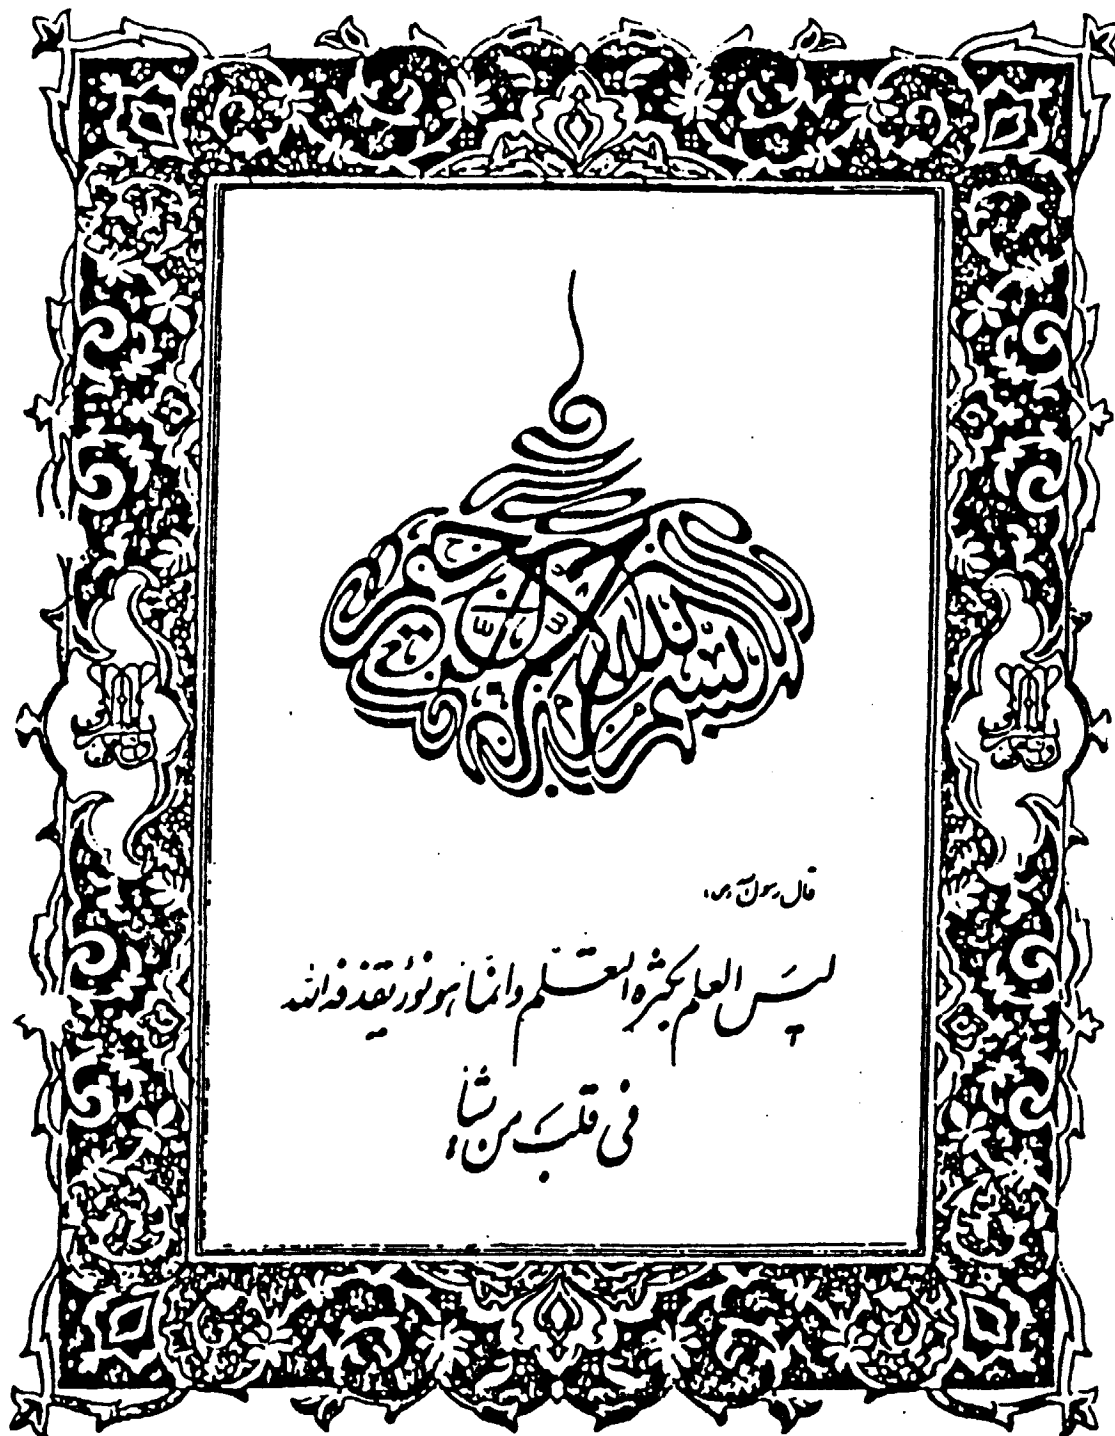 بسم الله الرحمن الرحيم
قال رسول الله (ص):
ليسَ العلم بكثرة التعلم وانما هو نورٌ يقذفه الله
في قلب من يشاء